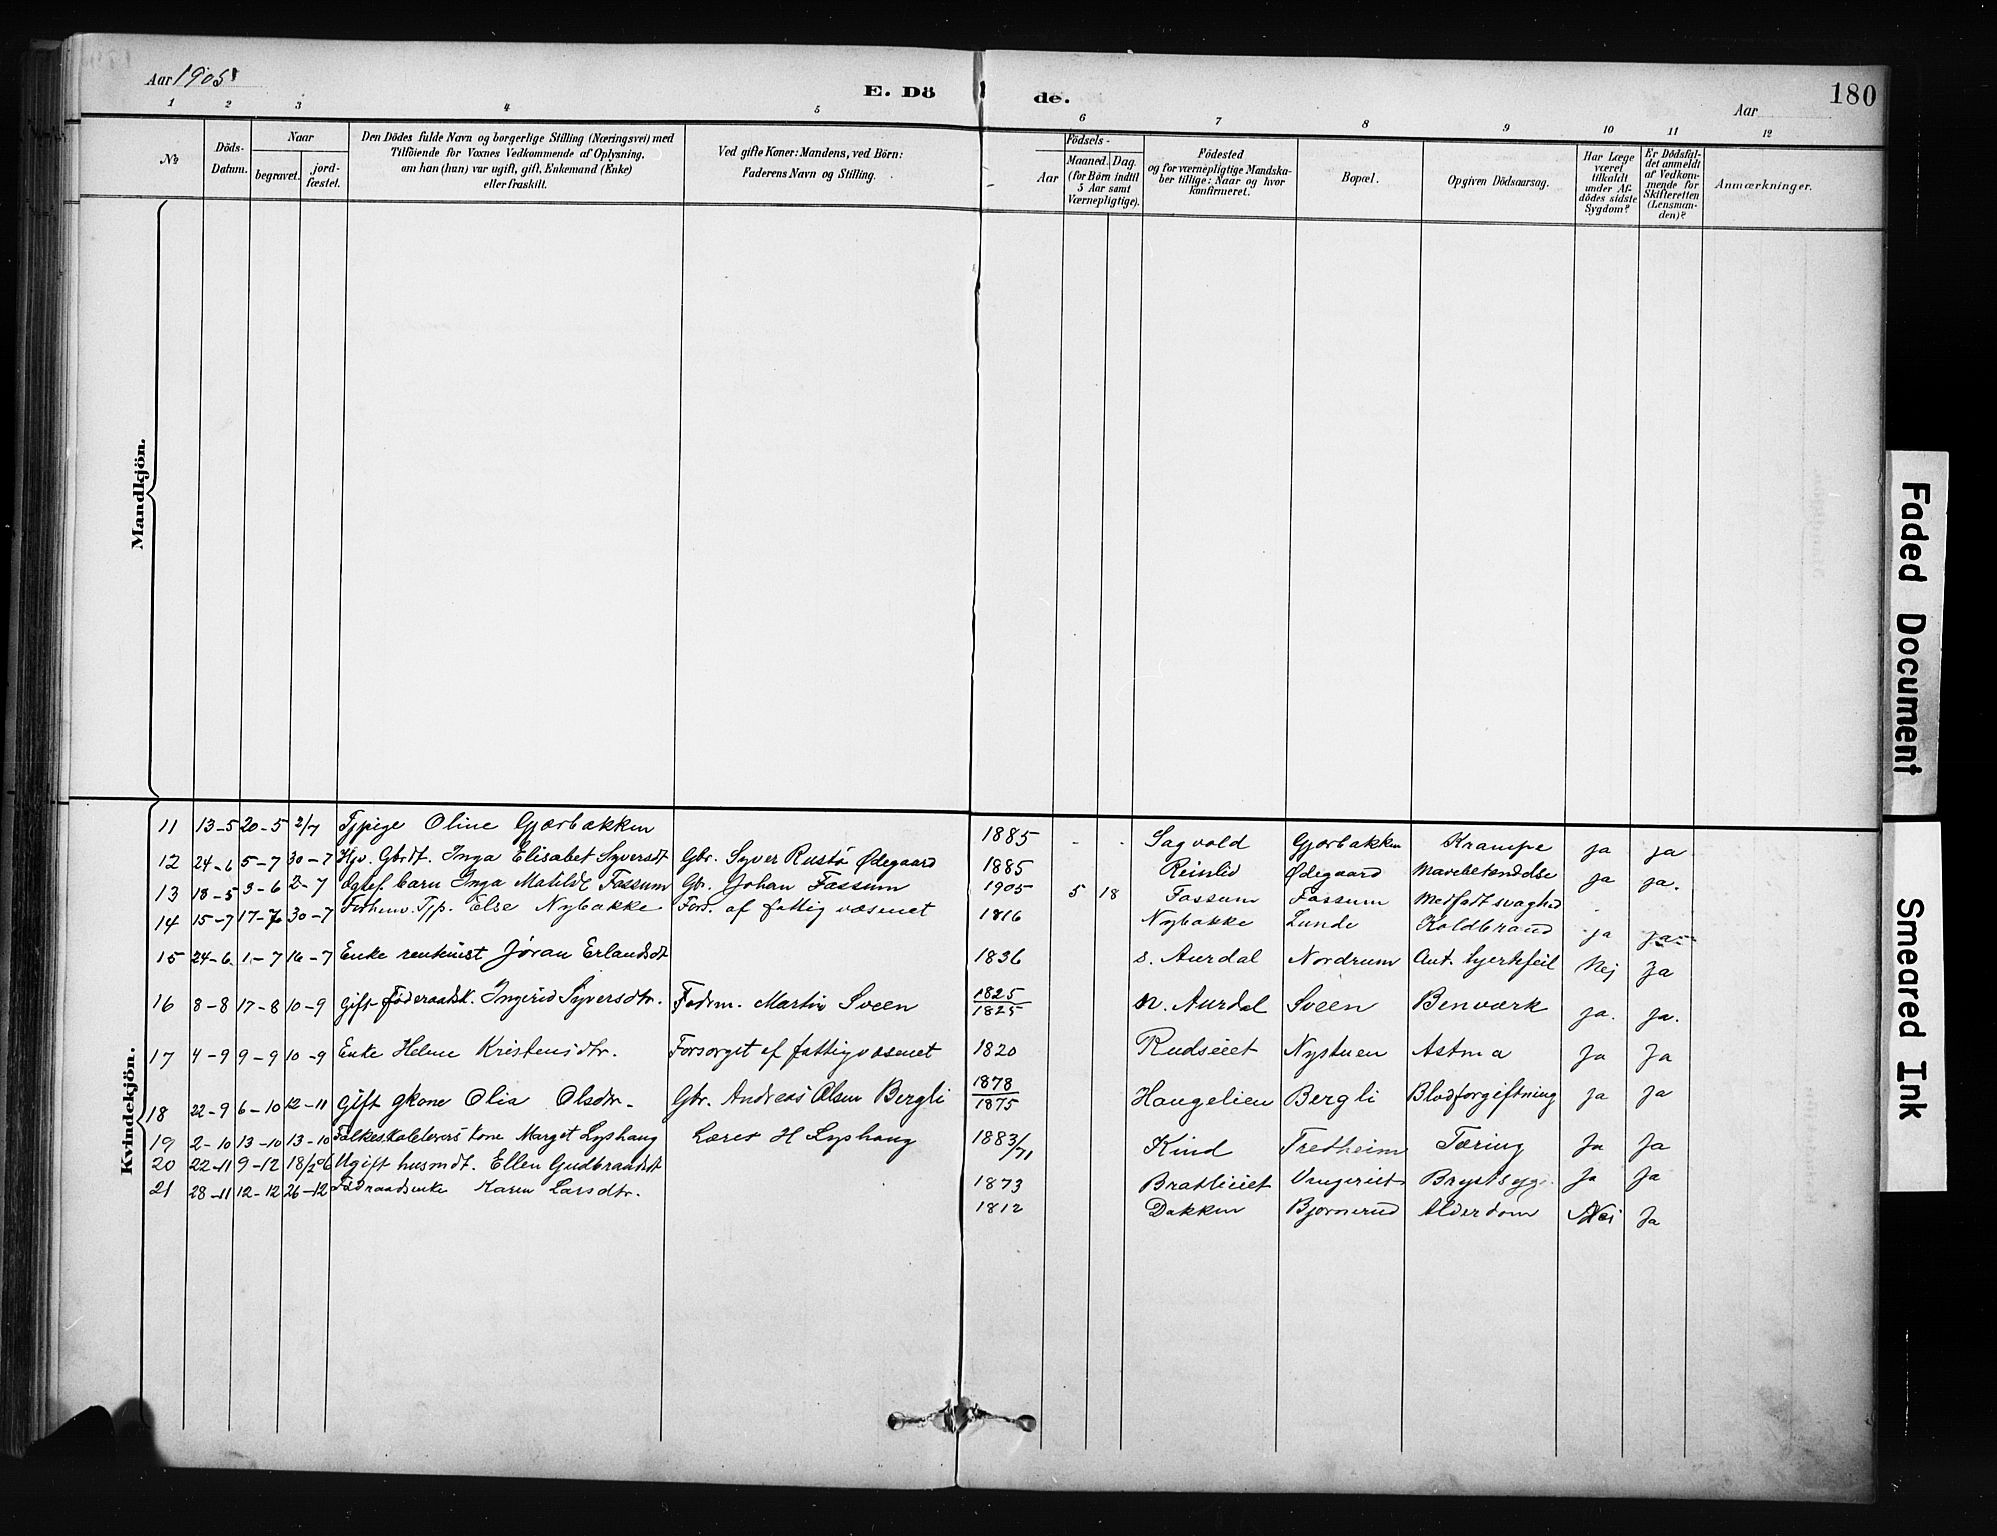 Aar 1905
E. Dö
de.
Aar
180
1 2 3 4 5 6 7 8 9 10 11 12
№
Döds-Datum.
Naar
begravet.
jord-fæstet.
Den Dödes fulde Navn og borgerlige Stilling (Næringsvei) med
Tilföiende for Voxnes Vedkommende af Oplysning,
om han (hun) var ugift, gift, Enkemand (Enke)
eller fraskilt.
Ved gifte Koner: Mandens, ved Börn:
Faderens Navn og Stilling.
Födsels-
Aar
Maaned. Dag.
(for Börn indtil
5 Aar samt
Værnepligtige).
Födested
og for værnepligtige Mandska-
ber tillige: Naar og hvor
konfirmeret.
Bopæl.
Opgiven Dödsaarsag.
Har Læge
været
tilkaldt
under Af-
dödes sidste
Sygdom?
Er Dödsfal-
det anmeldt
af Vedkom-
mende for
Skifteretten
(Lensman-
den)?
Anmærkninger.
Mandkjön.
Kvindekjön.
11 13-5 20-5 2/7 Tjpige Oline Gjørbakken 1885 - - Sagvold Gjørbakken Krampe ja ja
12 24-6 5-7 30-7 Kjv. Gbrdt. Inga Elisabet Syversdt Gbr. Syver Rustø Ødegaard 1885 Reinlid Ødegaard Mavebetændelse ja ja.
13 18-5 3-6 2-7 Ægtef. barn Inga Matilde Fossum Gbr. Johan Fossum 1905 5 18 Fossum Fossum Medfødt svaghed
14 15-7 17-7 30-7 Forhenv. Tjp. Else Nybakke Fors. af fattigvæsenet 1816 Nybakke Lunde Koldbrand ja ja
15 24-6. 1-7 16-7 Enke Jøran Erlandsdt 1836 S. Aurdal Nordrum Ant. hjertefeil Nej Ja
16 8-8 17-8 10-9 Gift føderaadsk. Ingerid Syversdtr. Fødrm. Martin Sveen 1825/1825 N. Aurdal Sveen Benværk ja. ja.
17 4-9 9-9 10-9 Enke Helene Kristensdtr. Forsørget af fattigvæsenet 1820 Rudseiet Nystuen Astma Ja Ja
18 22-9 6-10 12-11 Gift gkone Olia Olsdtr. Gbr. Andreas Olsen Bergli 1878/1875 Haugelien Bergli Blodforgiftning Ja Ja
19 2-10 13-10 13-10 Folkeskolelærers kone Marget Lyshaug Lærer H Lyshaug 1883/71 Kind Tredheim Tæring Ja Ja
20 22-11 9-12 18/2 06 Ugift husmdt. Ellen Gudbrandsdt 1873 Bratlieiet Brystsyge Ja Ja
21 28-11 12-12 26-12 Fødraadsenke Karen Larsdtr. 1812 Dokken Bjørnerud Alderdom Nei Ja
Faded Document
Smeared Ink